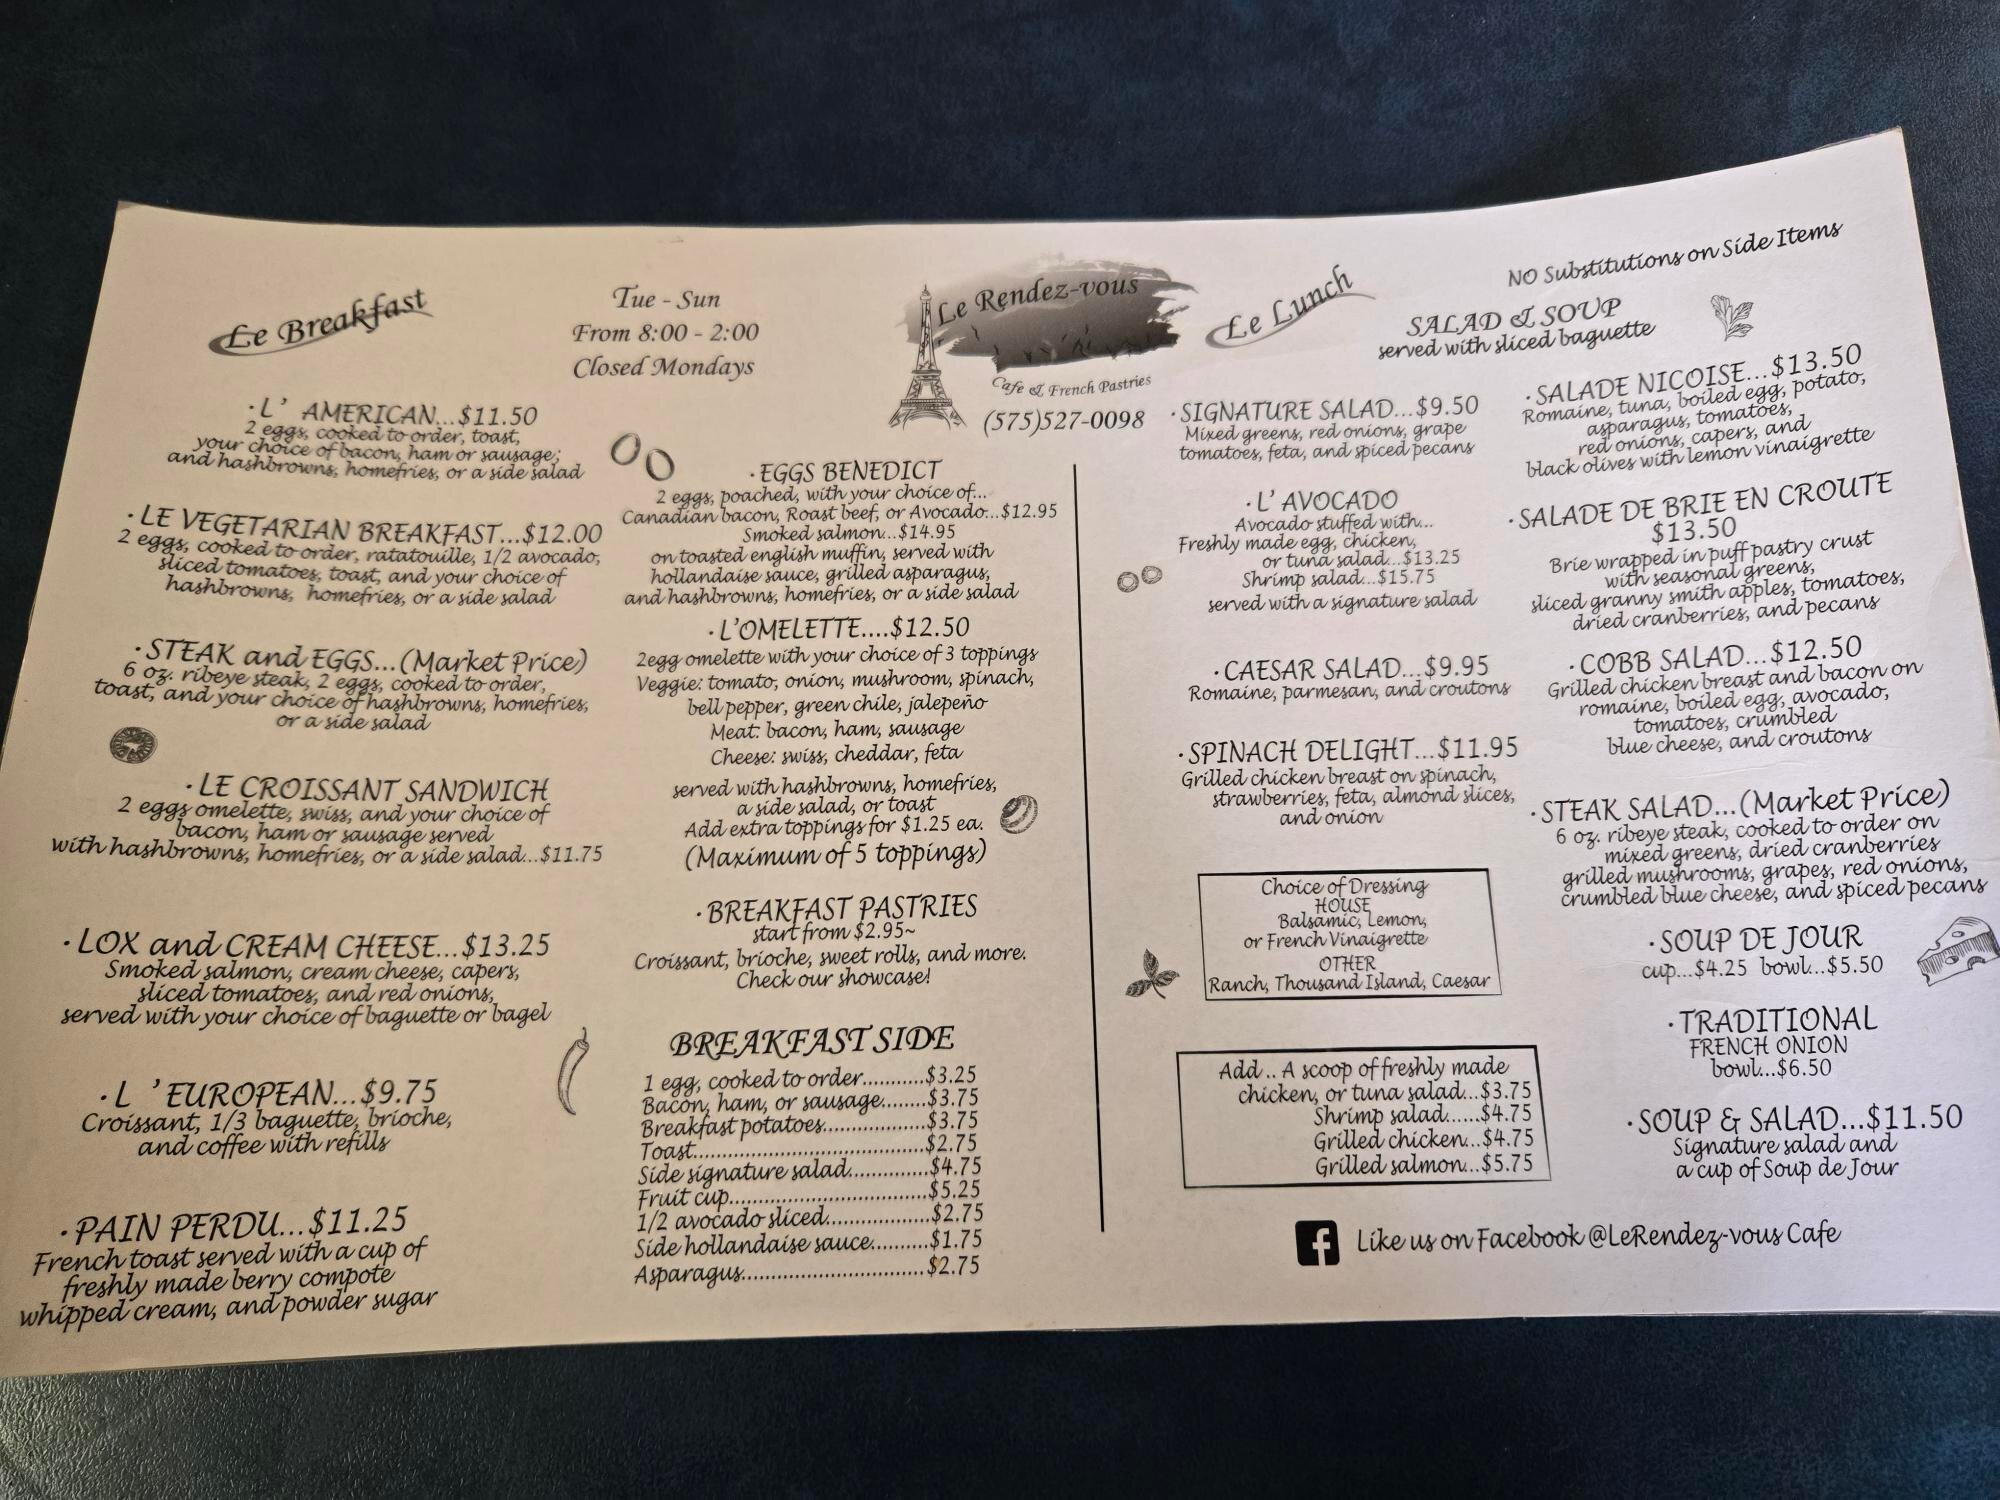 Le Breakfast
Tue - Sun
From 8:00 - 2:00
Closed Mondays
Le Rendez-vous
Cafe & French Pastries
(575)527-0098
· L' AMERICAN...$11.50
2 eggs, cooked to order, toast,
your choice of bacon, ham or sausage;
and hashbrowns, homefries, or a side salad
· LE VEGETARIAN BREAKFAST...$12.00
2 eggs, cooked to order, ratatouille, 1/2 avocado,
sliced tomatoes, toast, and your choice of
hashbrowns, homefries, or a side salad
· STEAK and EGGS...(Market Price)
6 oz. ribeye steak, 2 eggs, cooked to order,
toast, and your choice of hashbrowns, homefries,
or a side salad
· LE CROISSANT SANDWICH
2 eggs omelette, swiss, and your choice of
bacon, ham or sausage served
with hashbrowns, homefries, or a side salad...$11.75
· LOX and CREAM CHEESE...$13.25
Smoked salmon, cream cheese, capers,
sliced tomatoes, and red onions,
served with your choice of baguette or bagel
· L 'EUROPEAN...$9.75
Croissant, 1/3 baguette, brioche,
and coffee with refills
· PAIN PERDU...$11.25
French toast served with a cup of
freshly made berry compote
whipped cream, and powder sugar
· EGGS BENEDICT
2 eggs, poached, with your choice of...
Canadian bacon, Roast beef, or Avocado...$12.95
Smoked salmon...$14.95
on toasted english muffin, served with
hollandaise sauce, grilled asparagus,
and hashbrowns, homefries, or a side salad
· L'OMELETTE....$12.50
2egg omelette with your choice of 3 toppings
Veggie: tomato, onion, mushroom, spinach,
bell pepper, green chile, jalepeño
Meat: bacon, ham, sausage
Cheese: swiss, cheddar, feta
served with hashbrowns, homefries,
a side salad, or toast
Add extra toppings for $1.25 ea.
(Maximum of 5 toppings)
· BREAKFAST PASTRIES
start from $2.95~
Croissant, brioche, sweet rolls, and more.
Check our showcase!
BREAKFAST SIDE
1 egg, cooked to order...........$3.25
Bacon, ham, or sausage........$3.75
Breakfast potatoes..................$3.75
Toast.........................................$2.75
Side signature salad..............$4.75
Fruit cup...................................$5.25
1/2 avocado sliced..................$2.75
Side hollandaise sauce..........$1.75
Asparagus................................$2.75
Le Lunch
NO Substitutions on Side Items
SALAD & SOUP
served with sliced baguette
· SIGNATURE SALAD...$9.50
Mixed greens, red onions, grape
tomatoes, feta, and spiced pecans
· L' AVOCADO
Avocado stuffed with...
Freshly made egg, chicken,
or tuna salad...$13.25
Shrimp salad...$15.75
served with a signature salad
· CAESAR SALAD...$9.95
Romaine, parmesan, and croutons
· SPINACH DELIGHT...$11.95
Grilled chicken breast on spinach,
strawberries, feta, almond slices,
and onion
Choice of Dressing
HOUSE
Balsamic, Lemon,
or French Vinaigrette
OTHER
Ranch, Thousand Island, Caesar
Add .. A scoop of freshly made
chicken, or tuna salad...$3.75
Shrimp salad......$4.75
Grilled chicken...$4.75
Grilled salmon...$5.75
· SALADE NICOISE...$13.50
Romaine, tuna, boiled egg, potato,
asparagus, tomatoes,
red onions, capers, and
black olives with lemon vinaigrette
· SALADE DE BRIE EN CROUTE
$13.50
Brie wrapped in puff pastry crust
with seasonal greens,
sliced granny smith apples, tomatoes,
dried cranberries, and pecans
· COBB SALAD...$12.50
Grilled chicken breast and bacon on
romaine, boiled egg, avocado,
tomatoes, crumbled
blue cheese, and croutons
· STEAK SALAD...(Market Price)
6 oz. ribeye steak, cooked to order on
mixed greens, dried cranberries
grilled mushrooms, grapes, red onions,
crumbled blue cheese, and spiced pecans
· SOUP DE JOUR
cup...$4.25 bowl...$5.50
· TRADITIONAL
FRENCH ONION
bowl...$6.50
· SOUP & SALAD...$11.50
Signature salad and
a cup of Soup de Jour
f Like us on Facebook @LeRendez-vous Cafe